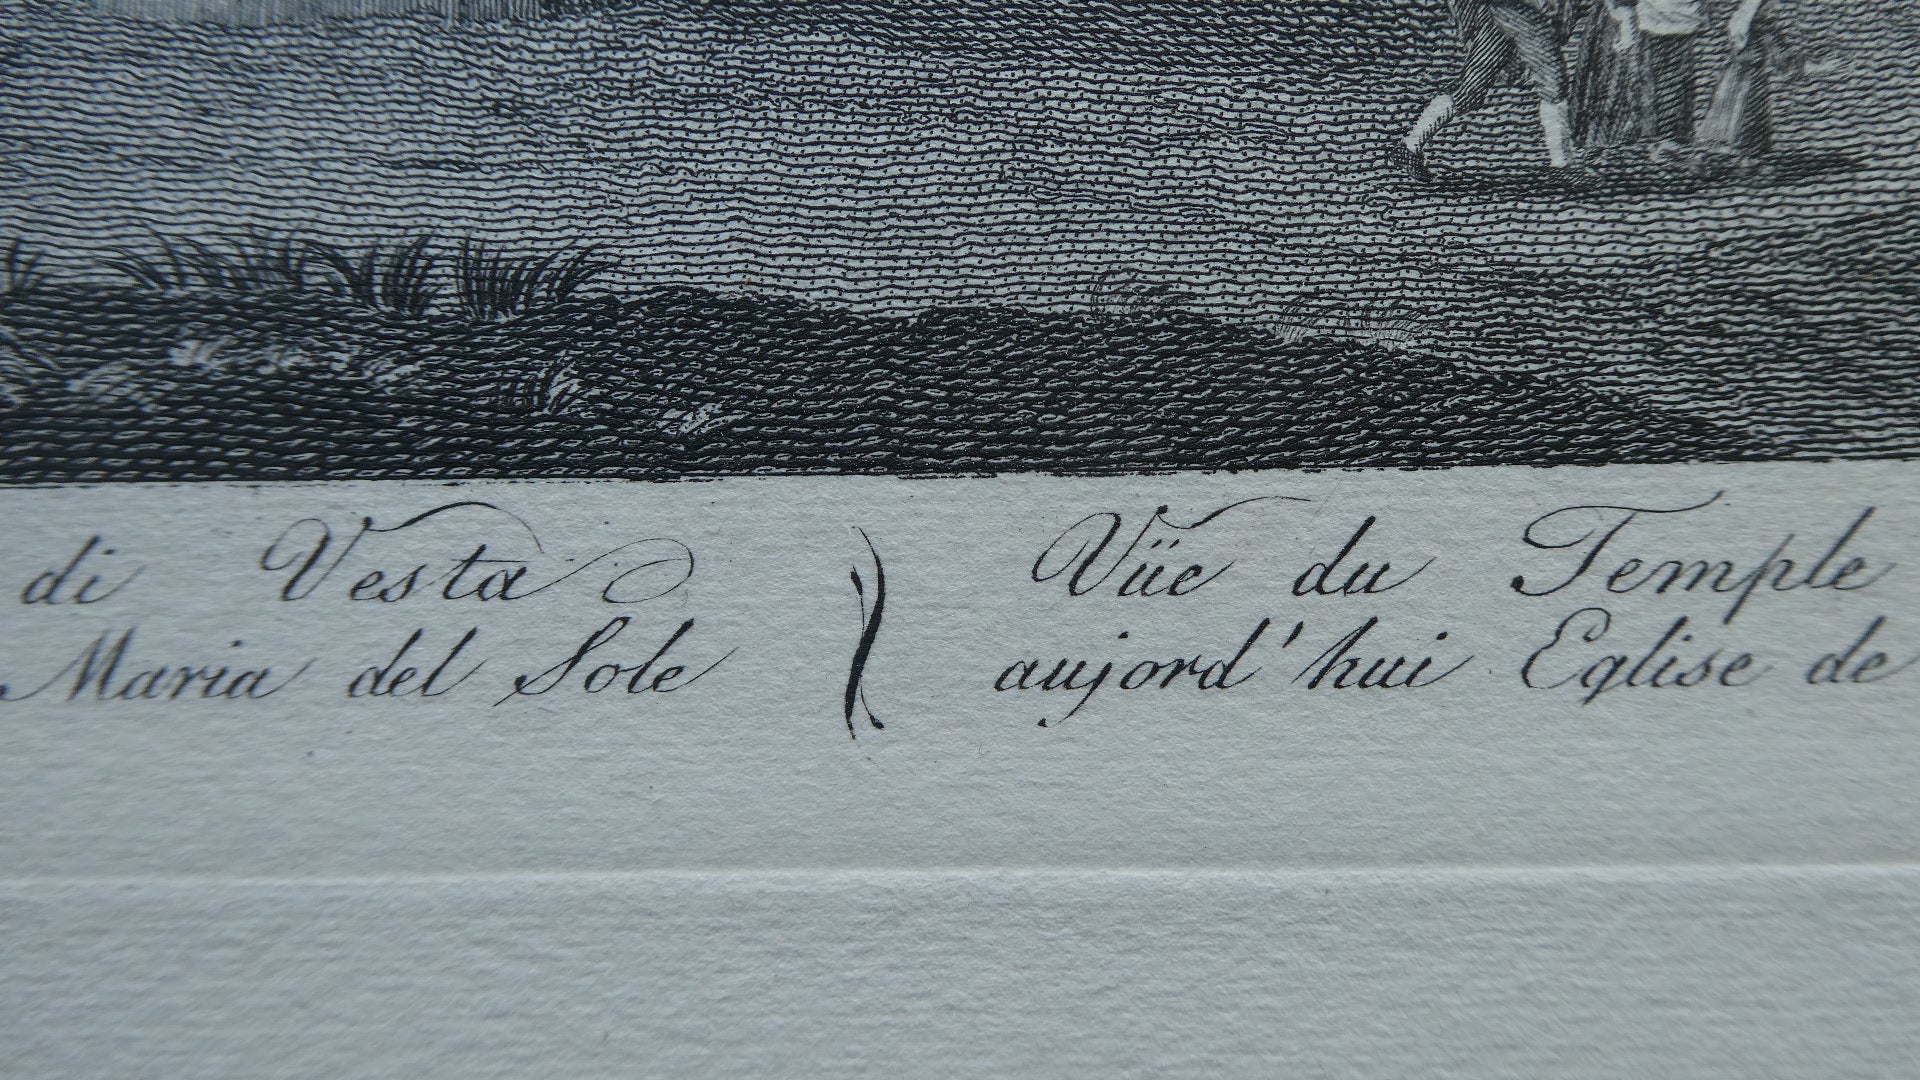 di Vesta
Maria del Sole
Vüe du Temple
aujord'hui Eglise de